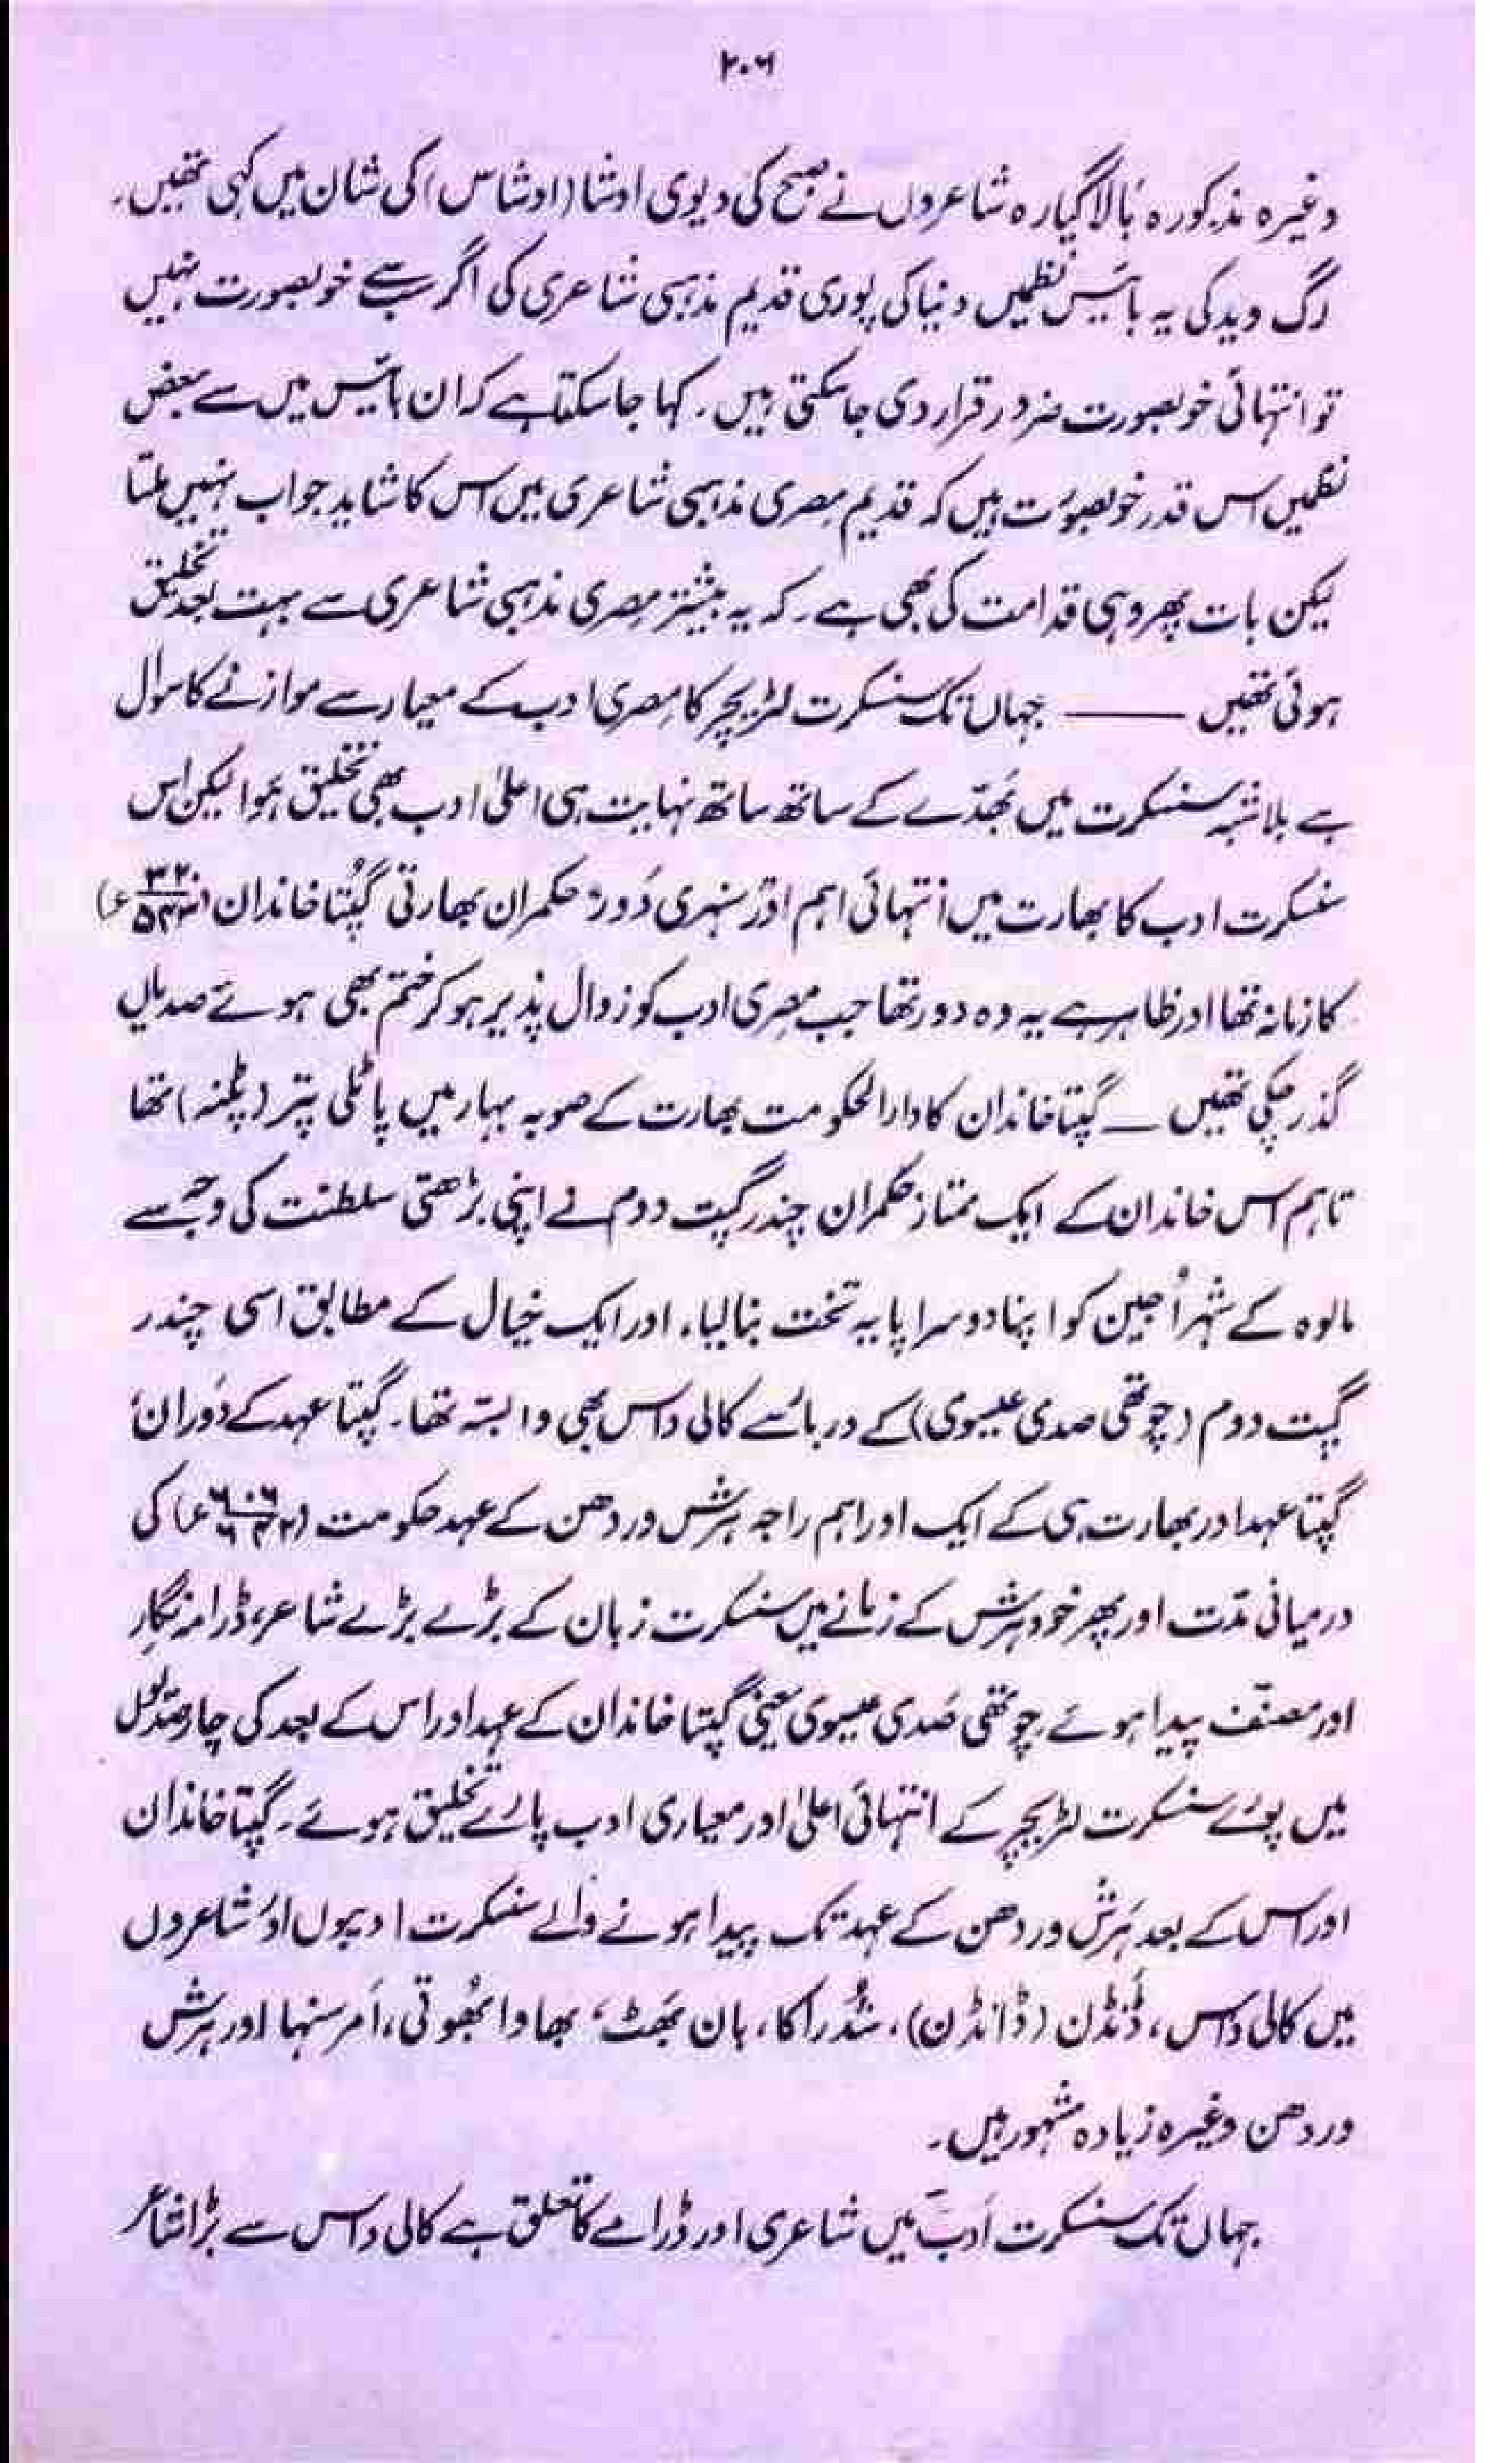 ۲۰۶
وغیرہ مذکورہ بالا گیارہ شاعروں نے صبح کی دیوی اوشا (اوشاس) کی شان میں کہی تھیں۔
رگ وید کی یہ بائیس نظمیں دنیا کی پوری قدیم مذہبی شاعری کی اگر سب سے خوبصورت نہیں
تو انتہائی خوبصورت ضرور قرار دی جاسکتی ہیں۔ کہا جا سکتا ہے کہ ان بائیس میں سے بعض
نظمیں اس قدر خوبصورت ہیں کہ قدیم مصری مذہبی شاعری میں اس کا شاید جواب نہیں ملتا
لیکن بات پھر وہی قدامت کی بھی ہے۔ کہ یہ بیشتر مصری مذہبی شاعری سے بہت بعد تخلیق
ہوئی تھیں ——— جہاں تک سنسکرت لٹریچر کا مصری ادب کے معیار سے موازنے کا سوال
ہے بلاشبہ سنسکرت میں بھدّے کے ساتھ ساتھ نہایت ہی اعلیٰ ادب بھی تخلیق ہوا لیکن اس
سنسکرت ادب کا بھارت میں انتہائی اہم اور سنہری دَور حکمران بھارتی گپتا خاندان
کا زمانہ تھا اور ظاہر ہے یہ وہ دور تھا جب مصری ادب کو زوال پذیر ہو کر ختم بھی ہوئے صدیاں
گذر چکی تھیں — گپتا خاندان کا دارالحکومت بھارت کے صوبہ بہار میں پاٹلی پتر (پٹنہ) تھا
تاہم اس خاندان کے ایک ممتاز حکمران چندر گپت دوم نے اپنی بڑھتی سلطنت کی وجہ سے
مالوہ کے شہر اُجین کو اپنا دوسرا پایہ تخت بنا لیا۔ اور ایک خیال کے مطابق اسی چندر
گپت دوم (چوتھی صدی عیسوی) کے دربار سے کالی داس بھی وابستہ تھا۔ گپتا عہد کے دَوران
گپتا عہد اور بھارت ہی کے ایک اور اہم راجہ ہرش وردھن کے عہد حکومت (۶۰۶ ۶۴۷ء) کی
درمیانی مدّت اور پھر خود ہرش کے زمانے میں سنسکرت زبان کے بڑے بڑے شاعر، ڈرامہ نگار
اور مصنّف پیدا ہوئے چوتھی صَدی عیسوی یعنی گپتا خاندان کے عہد اور اس کے بعد کی چار صدیوں
میں پورے سنسکرت لٹریچر کے انتہائی اعلیٰ اور معیاری ادب پارے تخلیق ہوئے۔ گپتا خاندان
اور اس کے بعد ہَرش وردھن کے عہد تک پیدا ہونے والے سنسکرت ادیبوں اور شاعروں
میں کالی داس، دَنڈن (ڈانڈن)، شُدراکا، بان بھَٹ، بھاوا بھُوتی، اَمر سنہا اور ہرش
وردھن وغیرہ زیادہ مشہور ہیں۔
جہاں تک سنسکرت اَدب میں شاعری اور ڈرامے کا تعلق ہے کالی داس سے بڑا شاعر